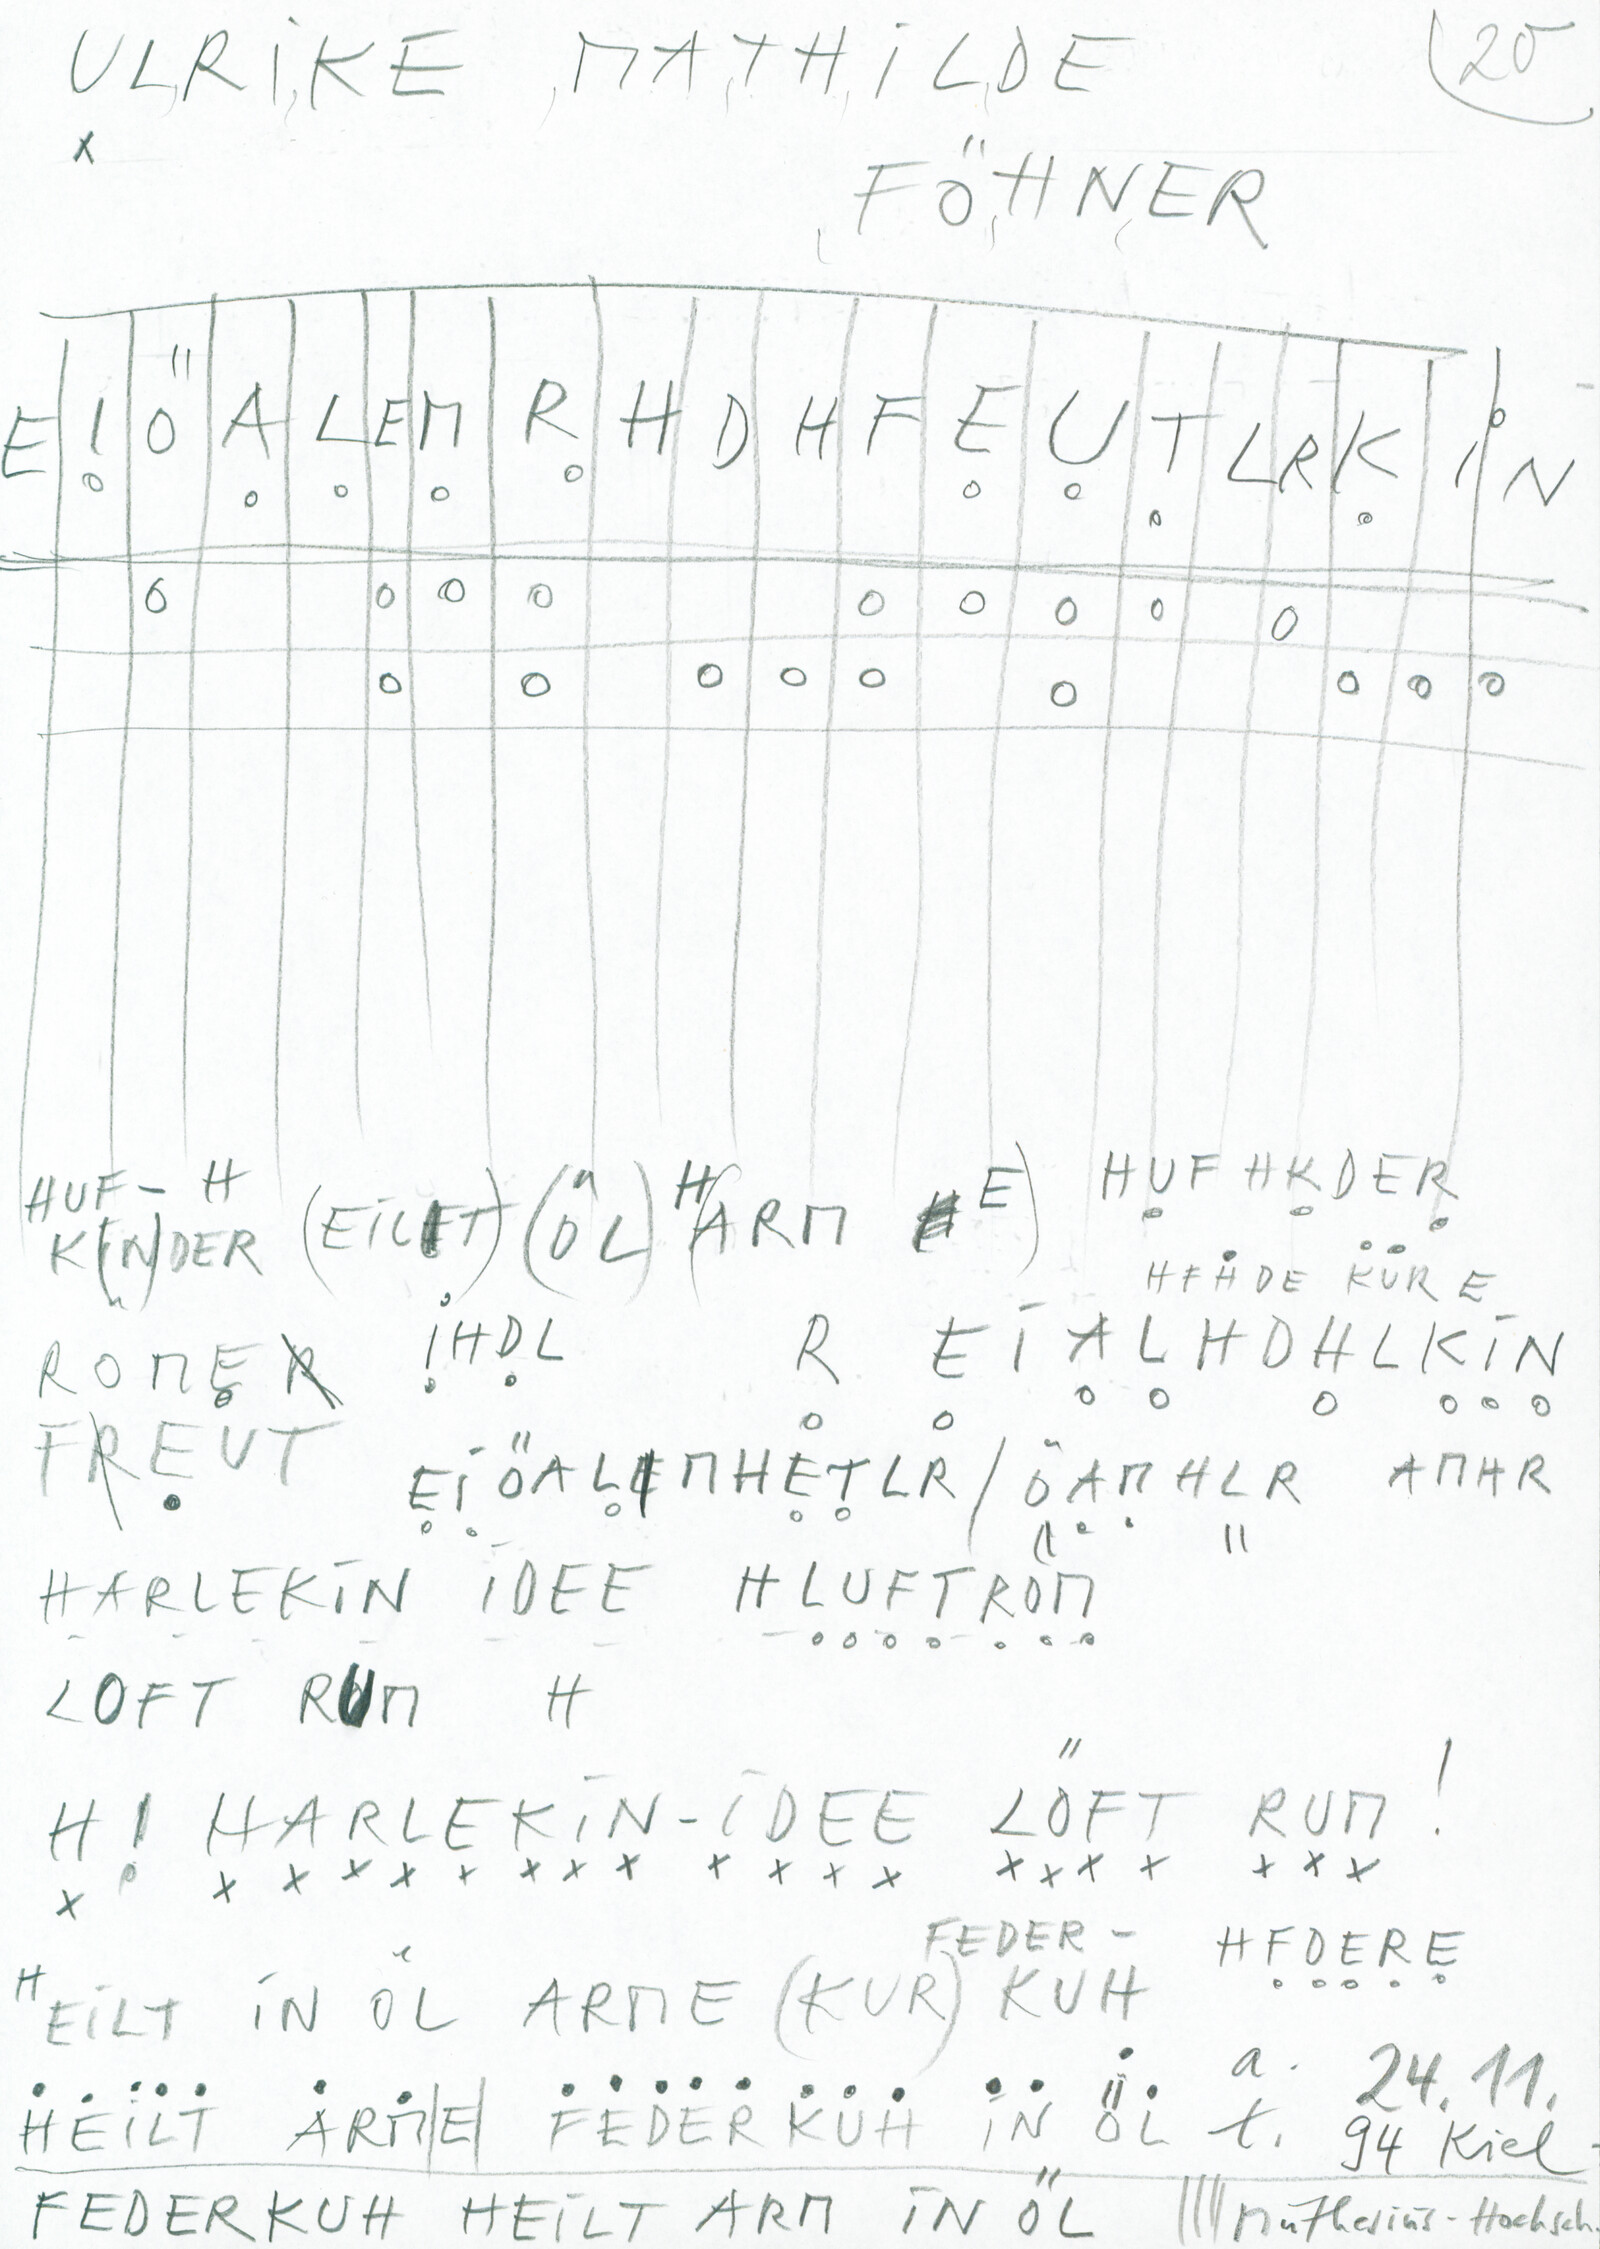 ULRIKE MATHILDE 20
x
FÖHNER
E I Ö A L E M R H D H F E U T L R K I N
HUF- H
KINDER (EILT) (ÖL) H (ARM E) HUF HKDER
HFHDE KUR E
ROMER IHDL R E I A L H D H L K I N
FREUT
EIÖALEMHETLR / ÖAMHLR AMHR
HARLEKIN IDEE HLUFTRÖM
LOFT RUM H
H! HARLEKIN-IDEE LÖFT RUM!
x x x x x x x x x x x x x x x x x x x x
FEDER- HFDERE
HEILT IN ÖL ARME (KUR) KUH
HEILT ARM|E| FEDERKUH IN ÖL a. t. 24.11.
94 Kiel-
FEDERKUH HEILT ARM IN ÖL Muthesius-Hochsch.